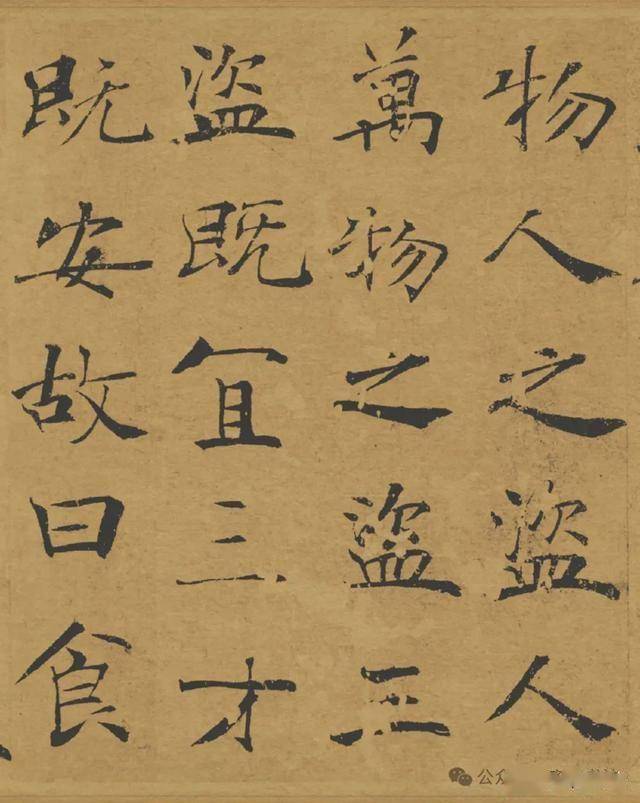 物人之盜人
萬物之盜三
盜既宜三才
既安故曰食
公众